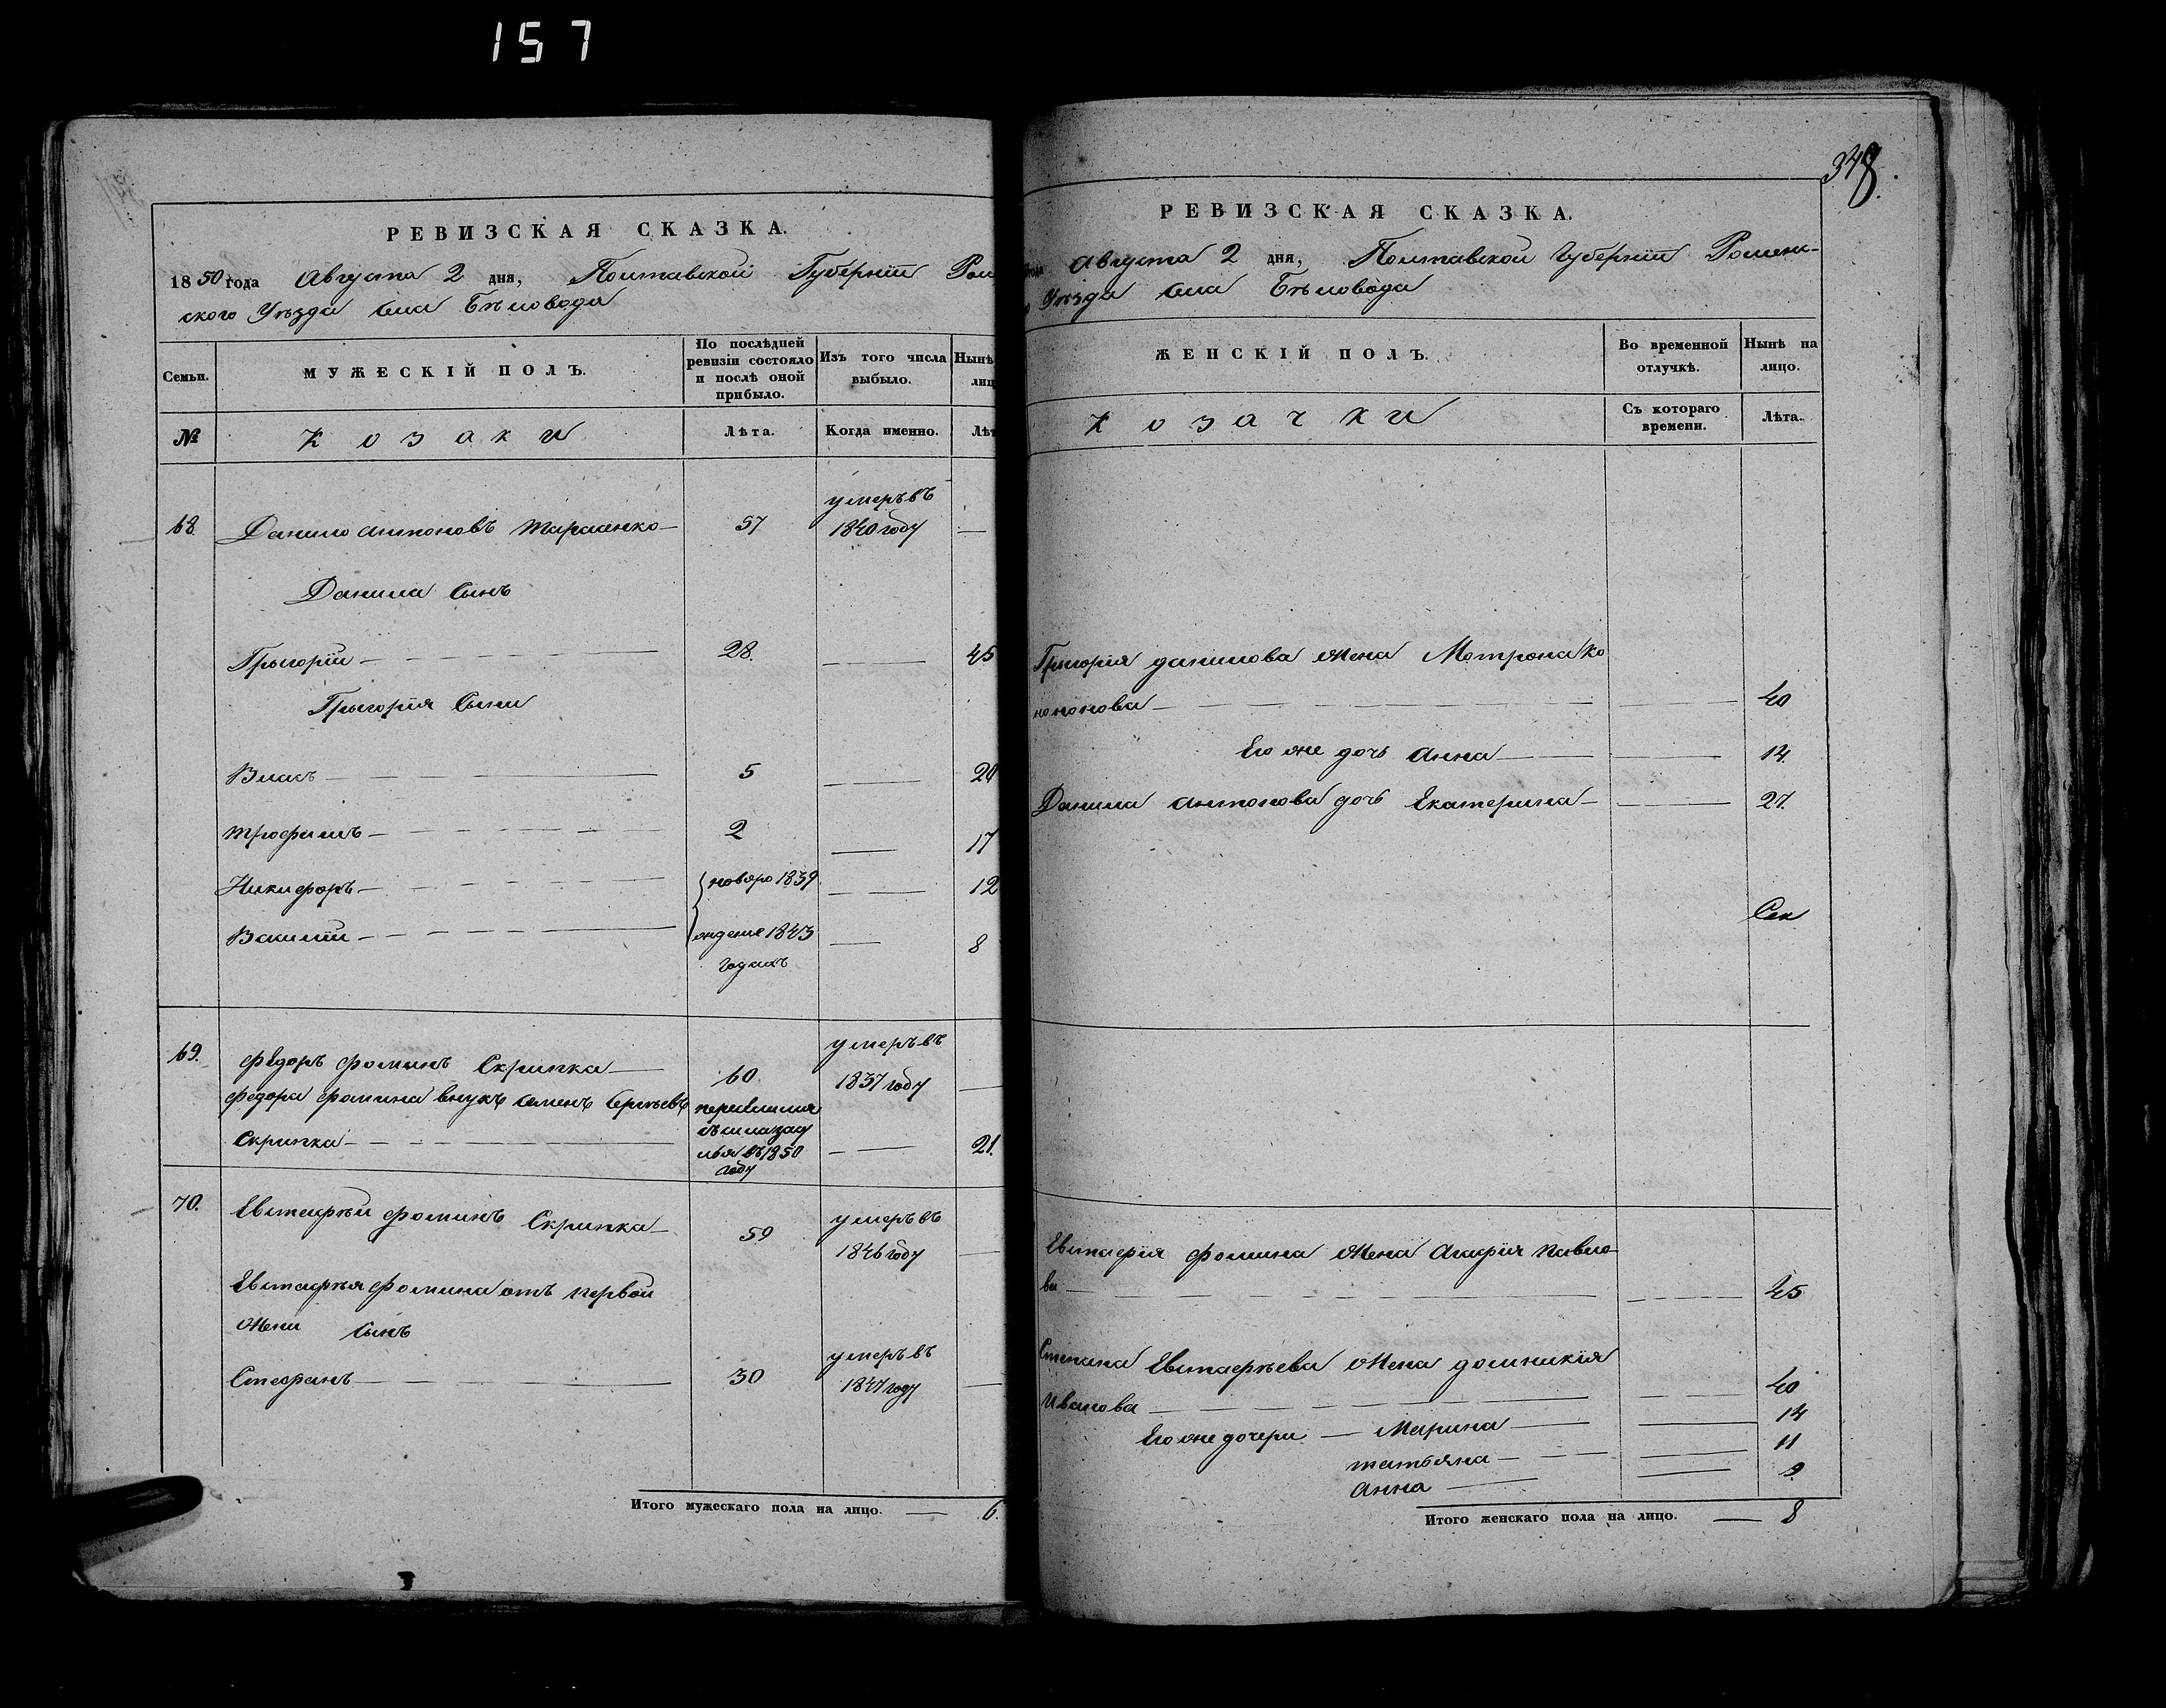 157
РЕВИЗСКАЯ СКАЗКА.
1850 года Августа 2 дня, Полтавской Губернiи Ром
ского Уѣзда села Бѣловода
Семьи.
МУЖЕСКIЙ ПОЛЪ.
По послѣдней ревизiи состояло и послѣ оной прибыло.
Изъ того числа выбыло.
Нынѣ
лиц
№
Козаки
Лѣта.
Когда именно.
Лѣт
68. Данило антоновъ тарасенко — 57 умеръ въ 1840 году —
Данила сынъ
Григорiй — 28. — 45
Григорiя сыни
Власъ — 5 — 20
трофимъ — 2 — 17
Никифоръ — новоро 1839 — 12
Василiй — ждение 1843 — 8
годахъ
69. федоръ фоминъ Скрипка — 60 умеръ въ 1837 году —
федора фомина внукъ семенъ Сергѣевъ
Скрипка — въ 1850 году — 21.
70. Евстафѣй фоминъ Скрипка — 59 умеръ въ 1846 году —
Евстафѣя фомина отъ первой
жени сынъ
Стефанъ — 30 умеръ въ 1847 году —
Итого мужескаго пола на лицо. — 6.
348.
РЕВИЗСКАЯ СКАЗКА.
года Августа 2 дня, Полтавской Губернiи Ромен-
о Уѣзда села Бѣловода
ЖЕНСКIЙ ПОЛЪ.
Во временной отлучкѣ.
Нынѣ на лицо.
Козачки
Съ котораго времени.
Лѣта.
Григорiя данилова жена Мотрона ко
нонова — — 40
Его же дочь Анна — — 14.
Данила антонова дочь Екатерина — — 27.
Евстафiя фомина жена Агафiя павло
ва — — 45
Степана Евстафѣева жена домникiя
Иванова — — 40
Его же дочери — Марина — — 14
татьяна — — 11
Анна — — 9.
Итого женскаго пола на лицо. — 8